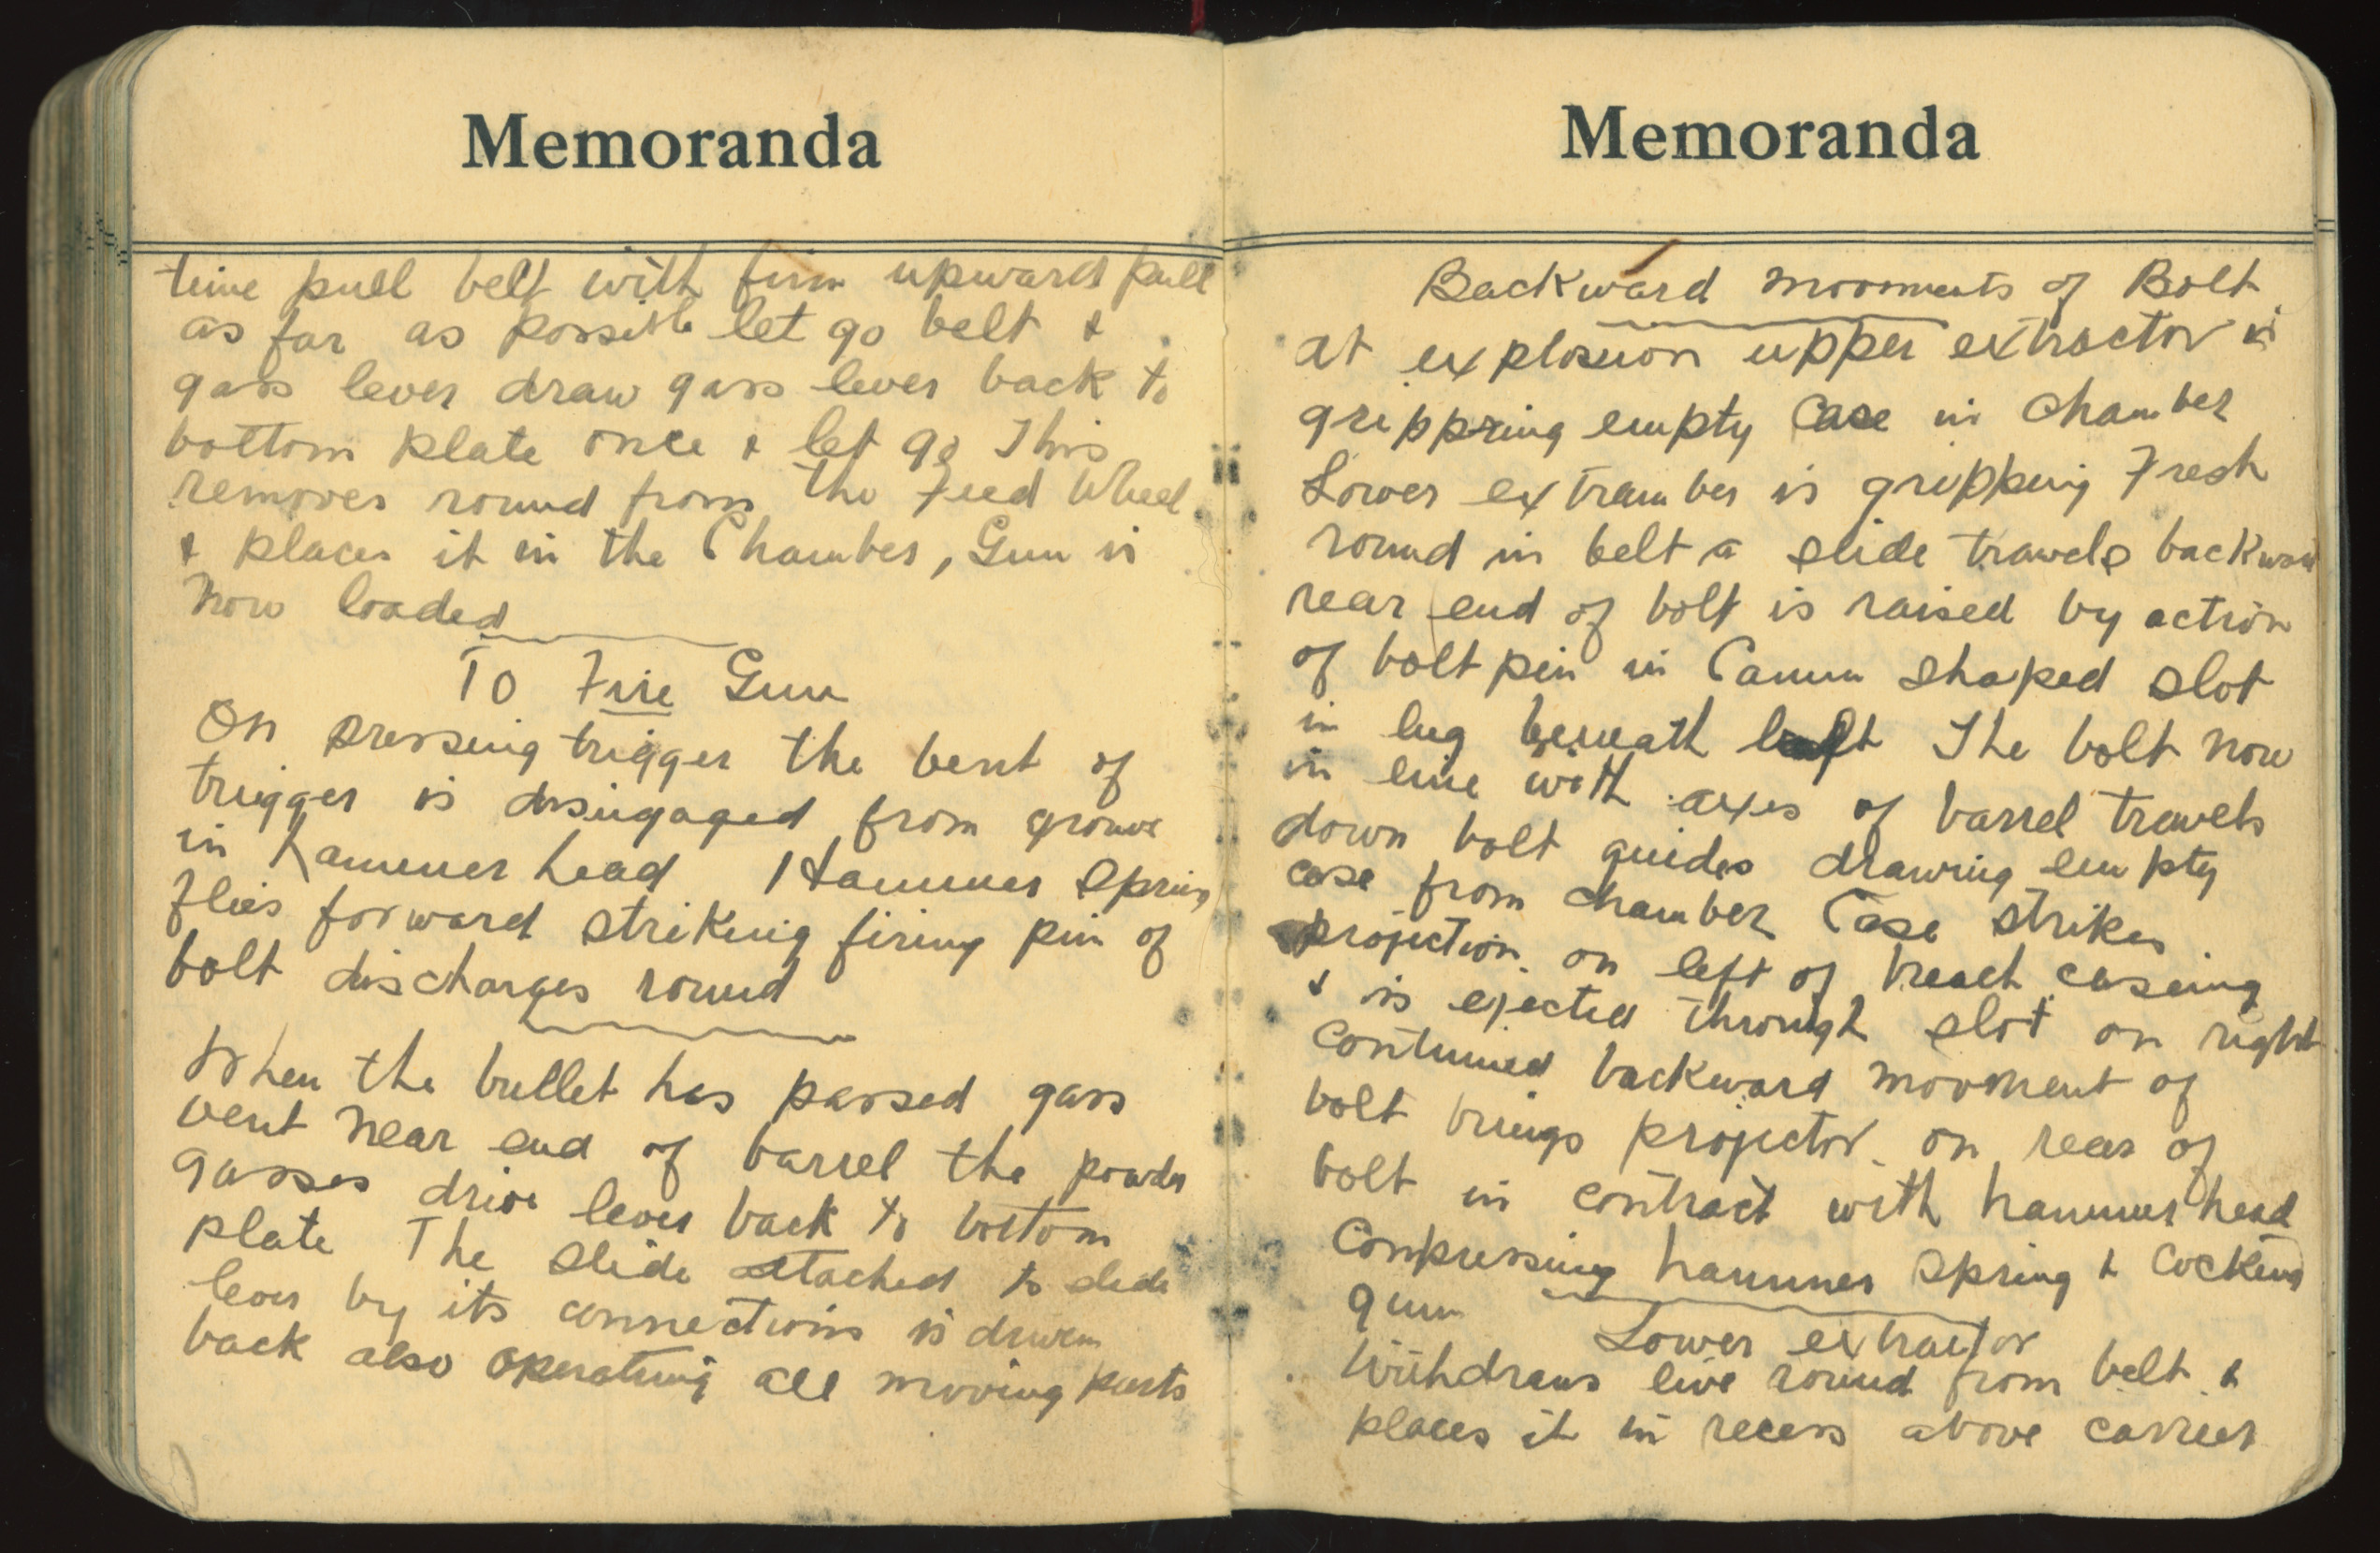 Memoranda
time pull belt with firm upward pull
as far as possible let go belt &
gass lever draw gass lever back to
bottom plate once & let go This
removes round from the Feed Wheel
& places it in the Chamber, Gun is
Now loaded
TO Fire Gun
On pressing trigger the bent of
trigger is disingaged from groove
in hammer head Hammer Spring
flies forward striking firing pin of
bolt discharges round
When the bullet has passed gass
vent near end of barrel the powder
gasses drive lever back to bottom
plate The slide attached to slide
lever by its connections is driven
back also operating all moving parts
Memoranda
Backward movments of Bolt
at explosion upper extractor is
grippring empty Case in Chamber
Lower extramber is gripping Fresh
round in belt a slide travels backward
rear end of bolt is raised by action
of bolt pin in Camm shaped slot
in lug beneath The bolt now
in line with axes of barrel travels
down bolt guides drawing empty
case from chamber Case strikes
projection on left of breach caseing
& is ejected through slot on right
Continued backward movment of
bolt brings projector on rear of
bolt in contract with hammer head
Compressing hammer spring & Cocking
gun
Lower extractor
Withdraws live round from belt &
places it in recess above carrier